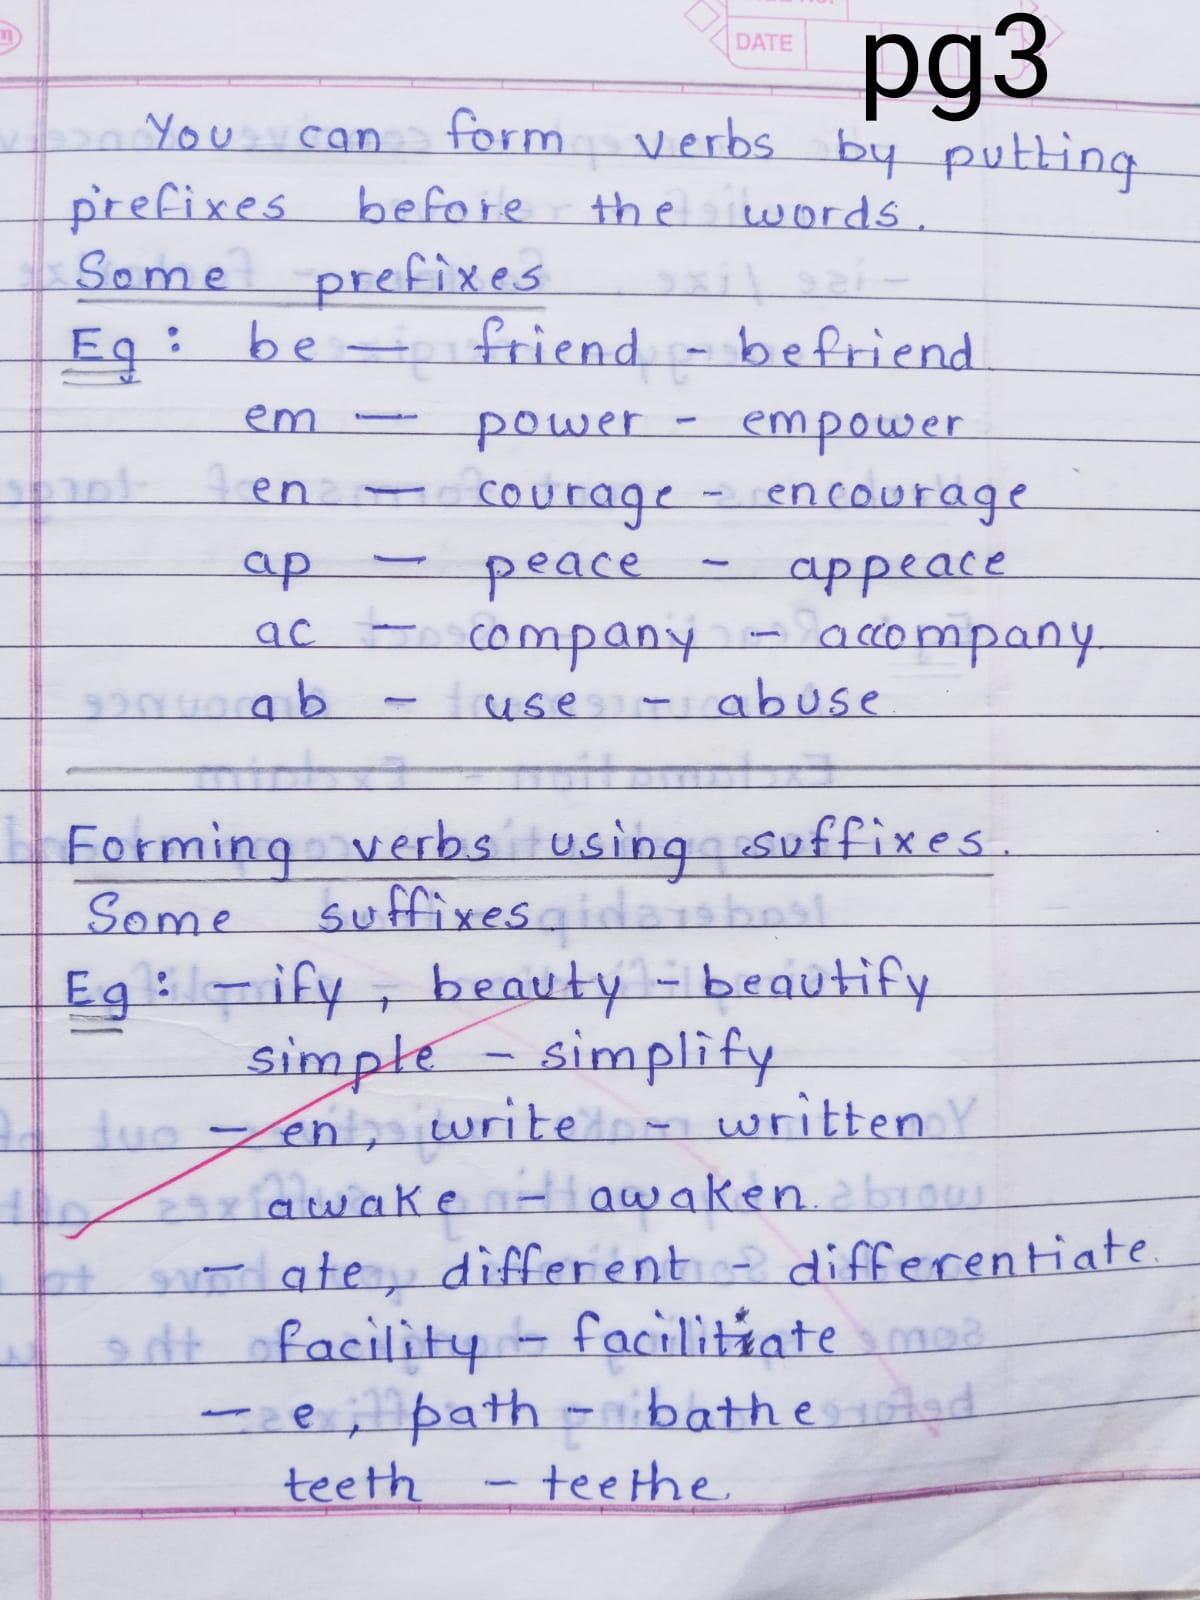 DATE
pg3
You can form verbs by putting
prefixes before the words.
Some prefixes
Eg : be — friend - befriend
em — power - empower
en — courage - encourage
ap — peace - appeace
ac — company - accompany.
ab - use - abuse
Forming verbs using suffixes.
Some suffixes.
Eg : - ify , beauty - beautify
simple - simplify
- en, write - written
awake - awaken.
- ate, different - differentiate.
facility - facilitiate
- e, path - bathe
teeth - teethe.